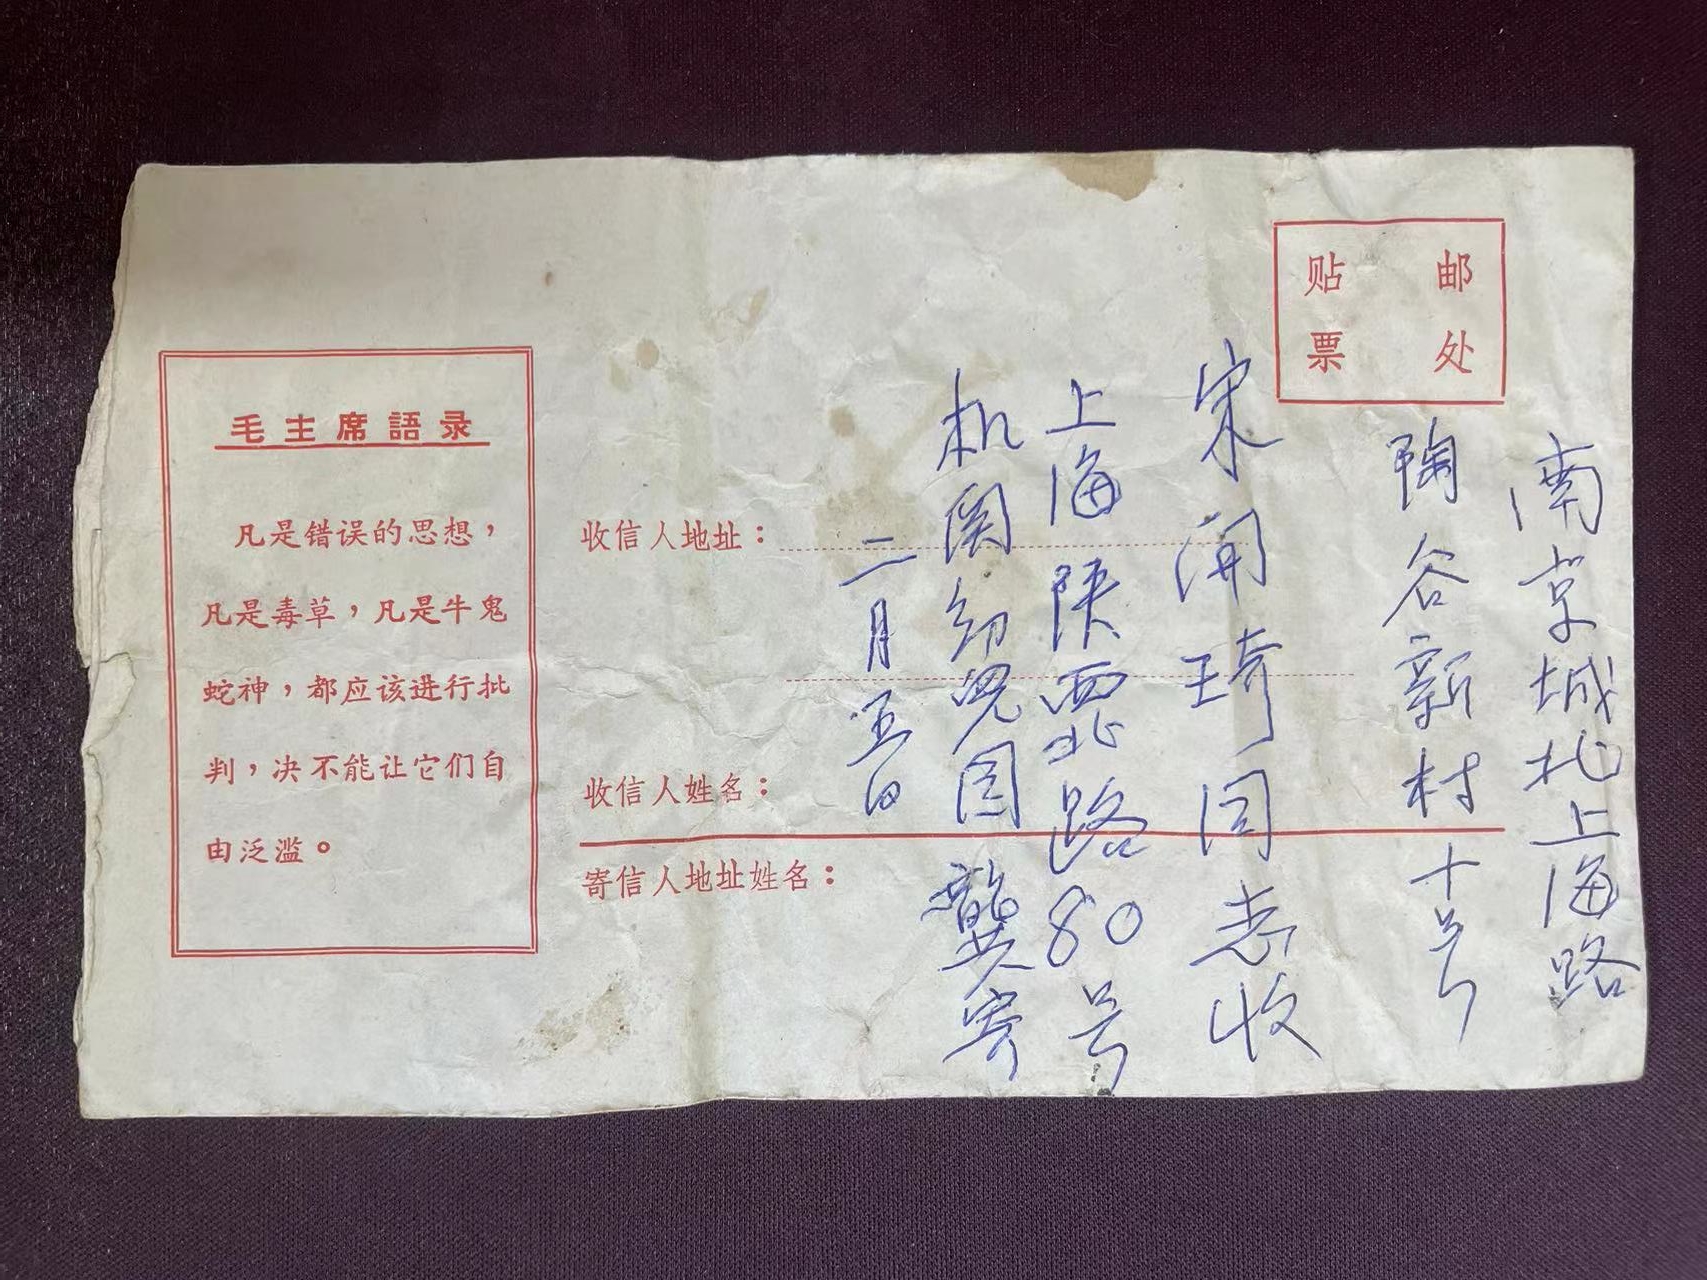 毛主席語录
凡是错误的思想，
凡是毒草，凡是牛鬼
蛇神，都应该进行批
判，决不能让它们自
由泛滥。
贴 邮
票 处
收信人地址：
收信人姓名：
寄信人地址姓名：
南京城北上海路
陶谷新村十号
宋闻琦同志收
上海陕西北路80号
机关幼儿园 龔寄
二月五日